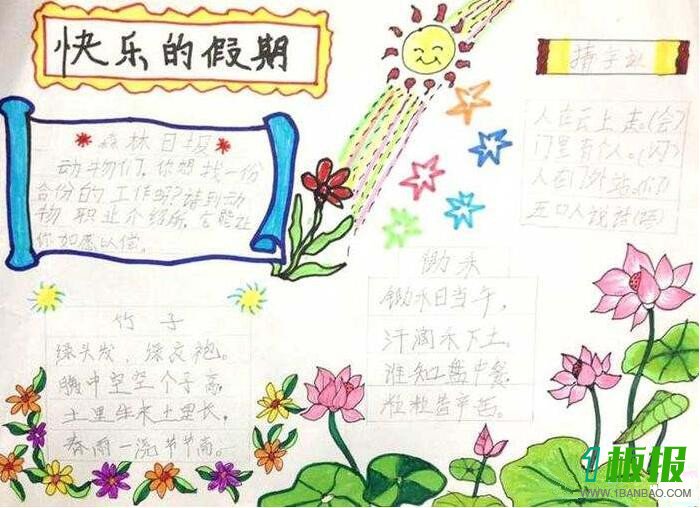 快乐的假期
猜字谜
森林日报
动物们,你想找一份
合份的工作吗?请到动
物职业介绍所,它能让
你如愿以偿。
人在云上走。(会)
门里有个人。(闪)
人在门外站。(们)
五口人说话(语)
锄禾
锄禾日当午,
汗滴禾下土。
谁知盘中餐,
粒粒皆辛苦。
竹子
绿头发,绿衣袍。
腰中空空个子高,
土里生来土里长,
春雨一浇节节高。
1板报
WWW.1BANBAO.COM